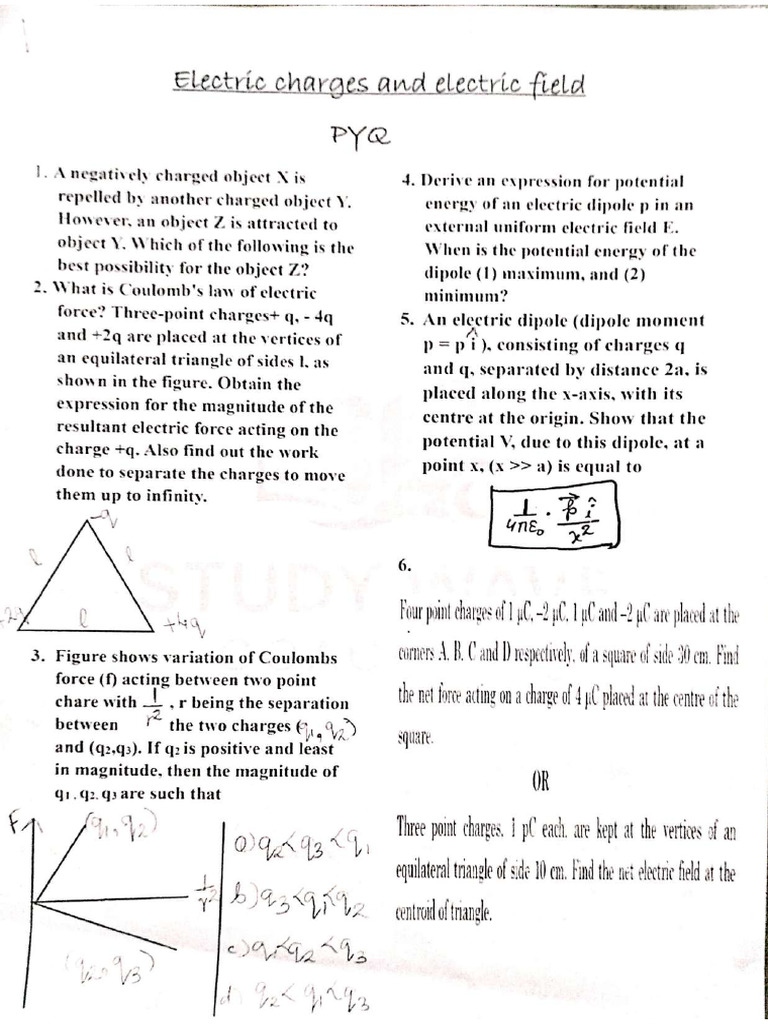 Electric charges and electric field
PYQ
1. A negatively charged object X is
repelled by another charged object Y.
However, an object Z is attracted to
object Y. Which of the following is the
best possibility for the object Z?
2. What is Coulomb's law of electric
force? Three-point charges+ q, - 4q
and +2q are placed at the vertices of
an equilateral triangle of sides l, as
shown in the figure. Obtain the
expression for the magnitude of the
resultant electric force acting on the
charge +q. Also find out the work
done to separate the charges to move
them up to infinity.
-q
l l
+2q l +4q
3. Figure shows variation of Coulombs
force (f) acting between two point
chare with 1/r² , r being the separation
between the two charges (q₁, q₂)
and (q₂,q₃). If q₂ is positive and least
in magnitude, then the magnitude of
q₁ , q₂, q₃ are such that
F (q₁, q₂)
1/r²
(q₂, q₃)
a) q₂<q₃<q₁
b) q₃<q₁<q₂
c) q₁<q₂<q₃
d) q₂<q₁<q₃
4. Derive an expression for potential
energy of an electric dipole p in an
external uniform electric field E.
When is the potential energy of the
dipole (1) maximum, and (2)
minimum?
5. An electric dipole (dipole moment
p = p î ), consisting of charges q
and q, separated by distance 2a, is
placed along the x-axis, with its
centre at the origin. Show that the
potential V, due to this dipole, at a
point x, (x >> a) is equal to
1/4πε₀ · p⃗ î/x²
6.
Four point charges of 1 μC, –2 μC, 1 μC and –2 μC are placed at the
corners A, B, C and D respectively, of a square of side 30 cm. Find
the net force acting on a charge of 4 μC placed at the centre of the
square.
OR
Three point charges, 1 pC each, are kept at the vertices of an
equilateral triangle of side 10 cm. Find the net electric field at the
centroid of triangle.
STUDY